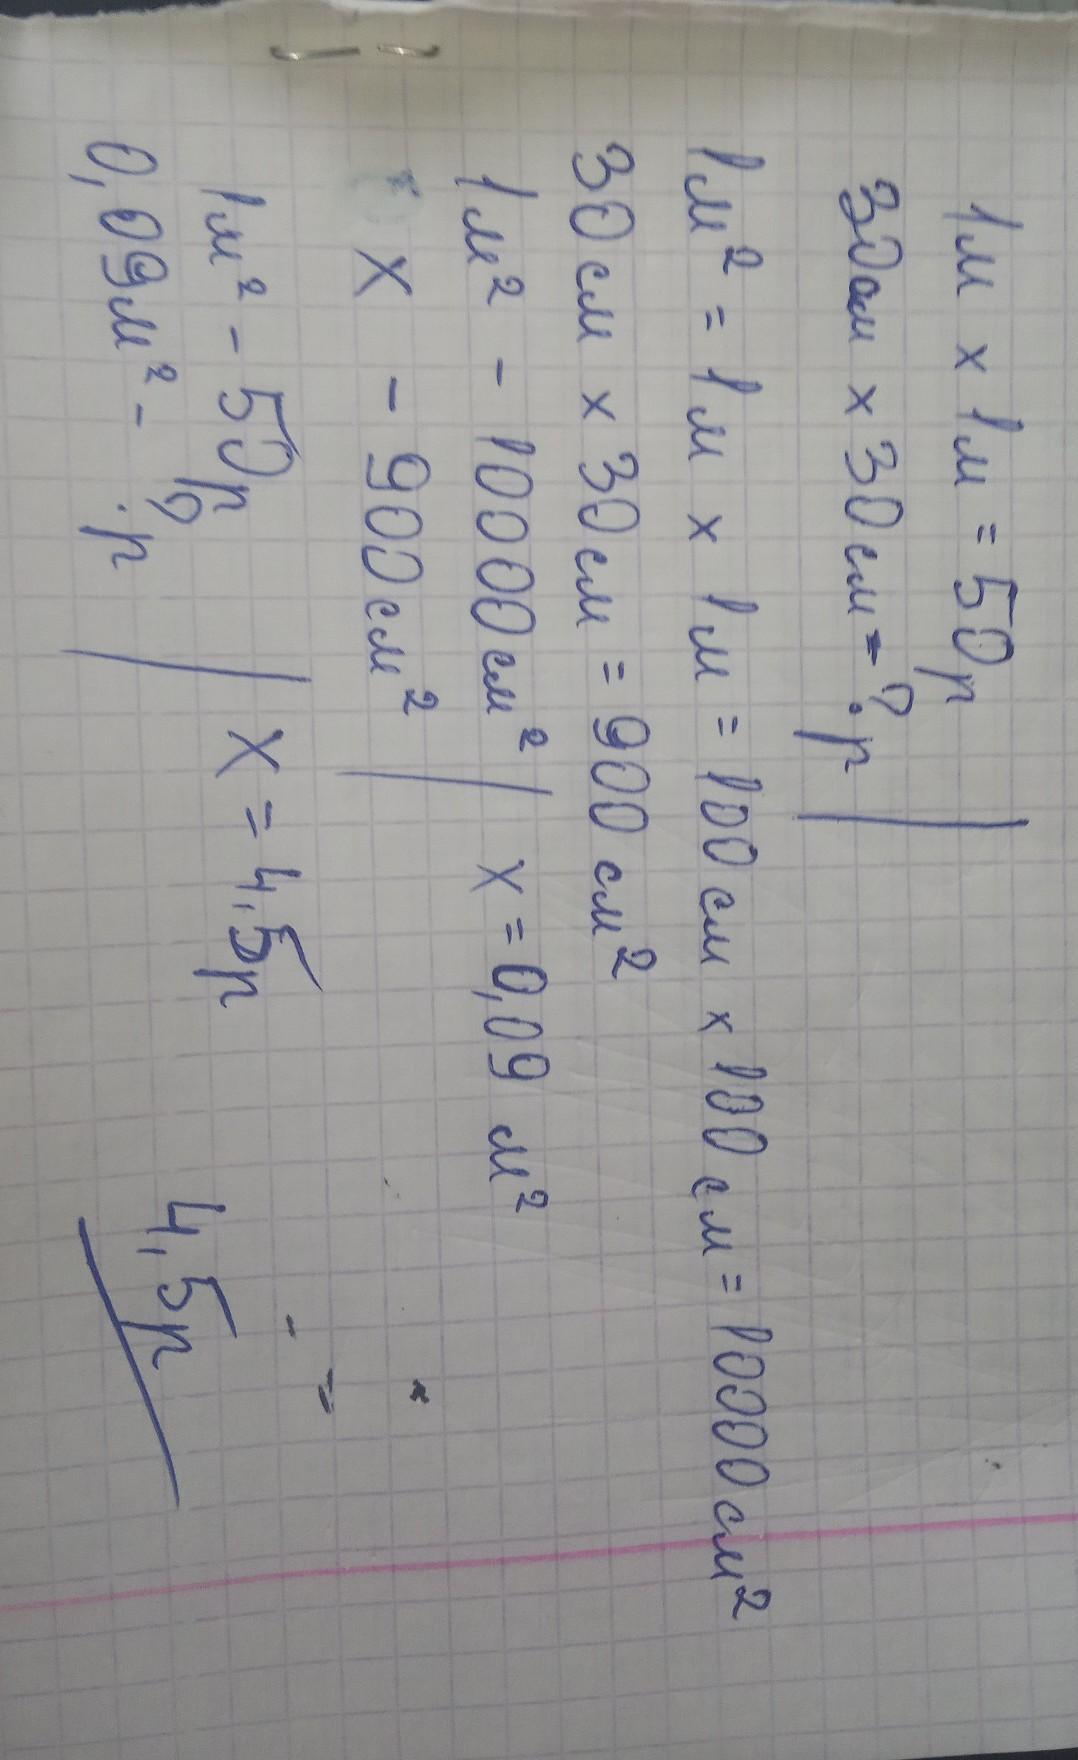 1м х 1м = 50р
30см х 30см = ?р
1м² = 1м х 1м = 100см х 100см = 10000см²
30см х 30см = 900см²
1м² - 10000см² | х = 0,09 м²
х - 900см²
1м² - 50р | х = 4,5р
0,09м² - ?р
4,5р